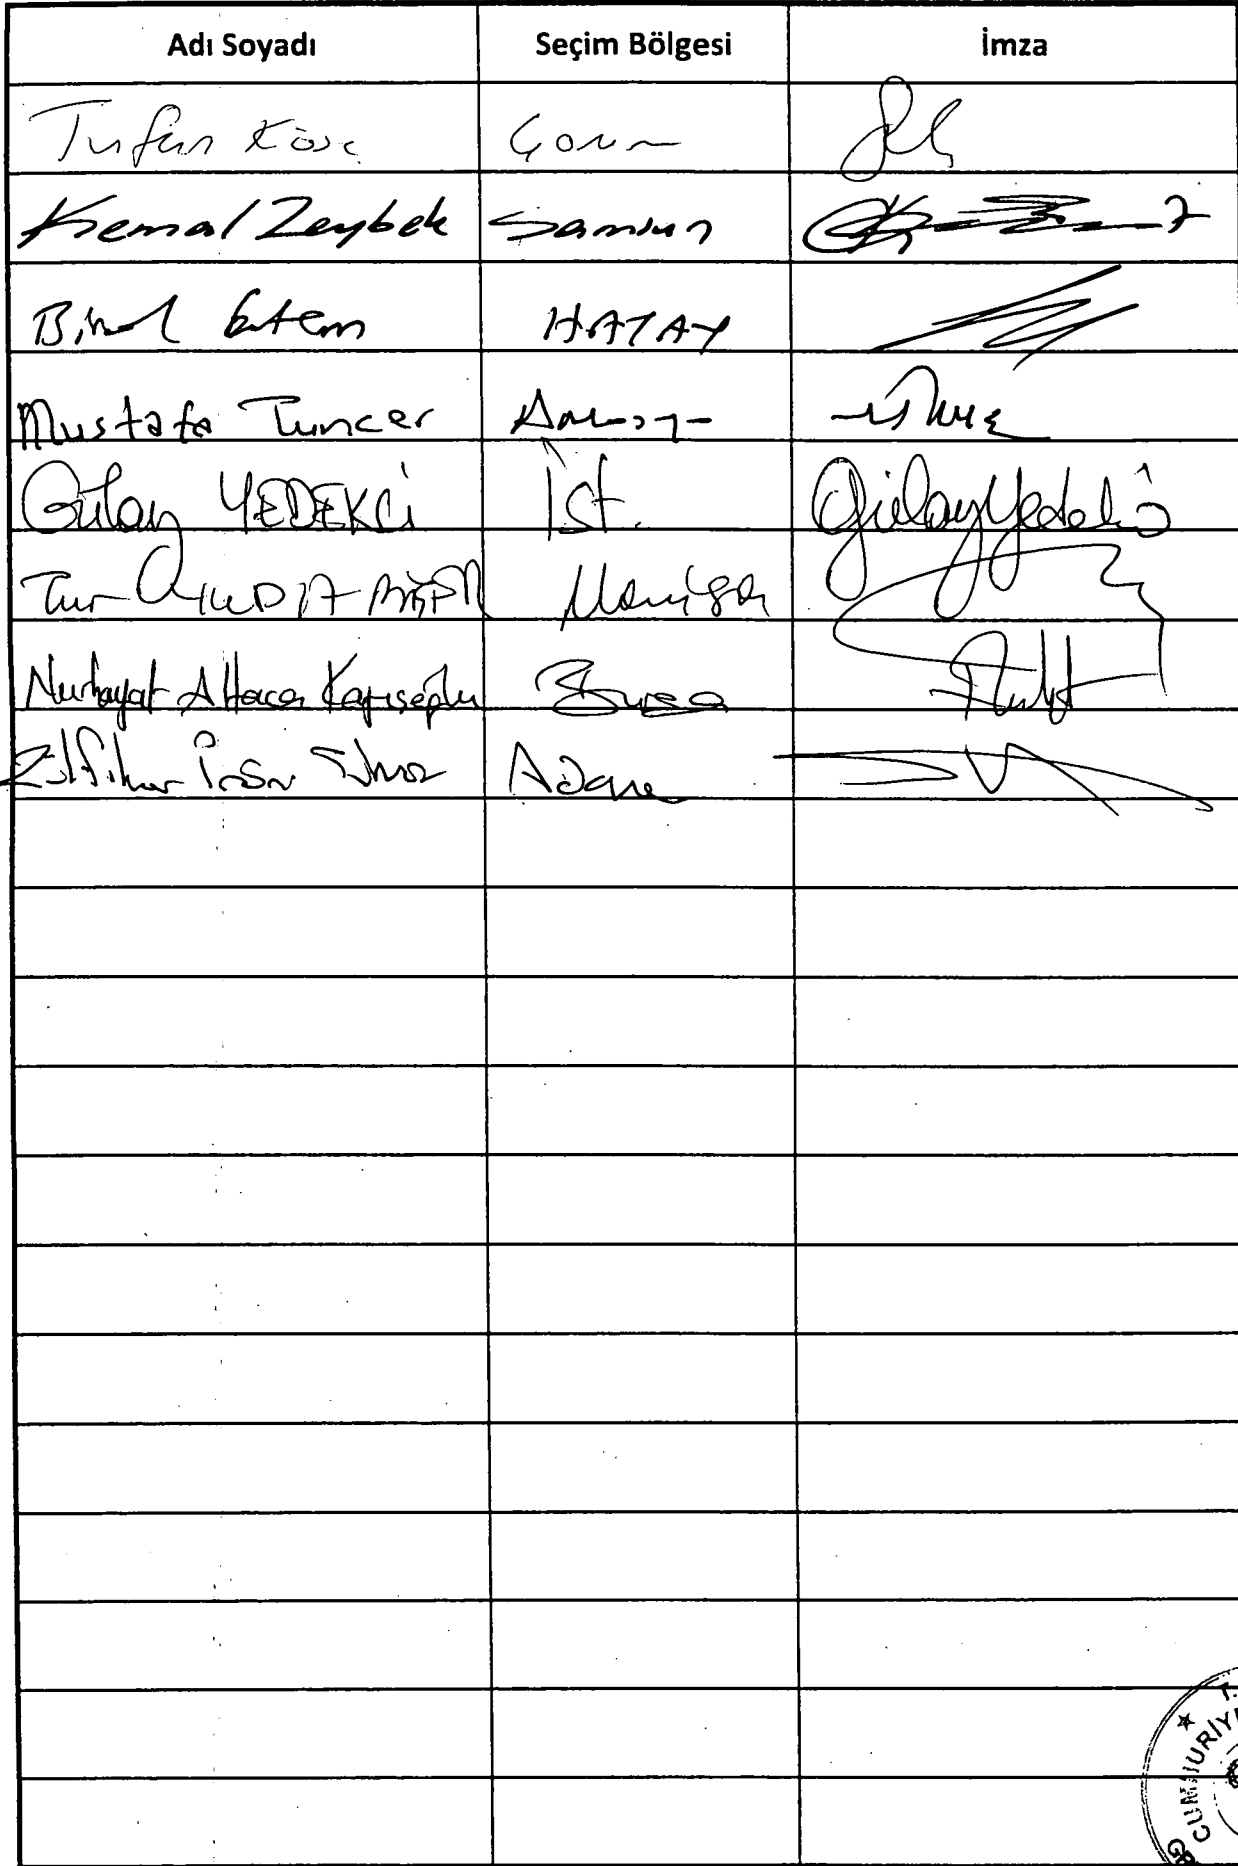 Adı Soyadı Seçim Bölgesi İmza
Tufan Köse Çorum
Kemal Zeybek Samsun
Birol Ertem HATAY
Mustafa Tuncer Amasya
Gülay YEDEKCİ İst. Gülay Yedekci
Tur YILDIZ BİÇER Manisa
Nurhayat Altaca Kayışoğlu Bursa
Zülfikar İnönü Tümer Adana
CUMHURİYE